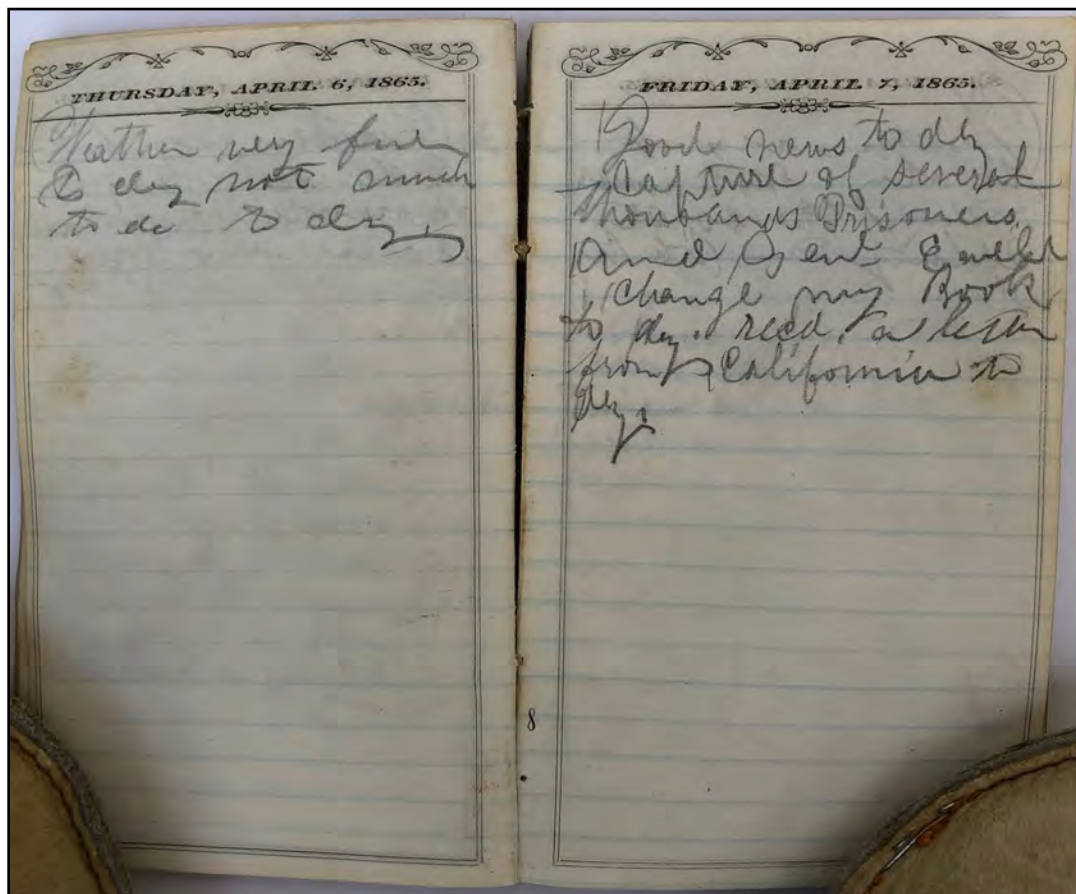 THURSDAY, APRIL 6, 1865.
Weather very fine
to day not much
to do to day,
FRIDAY, APRIL 7, 1865.
Good news to day
Capture of several
thousands Prisoners.
And Genl Ewell
change my Book
to day. recd. a letter
from California to
day.
8